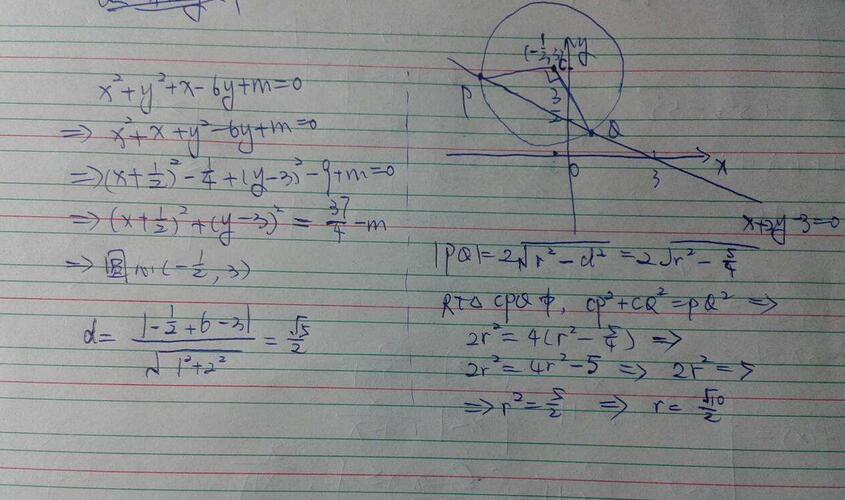 x²+y²+x-6y+m=0
⇒ x²+x+y²-6y+m=0
⇒(x+1/2)²-1/4+(y-3)²-9+m=0
⇒(x+1/2)²+(y-3)²=37/4-m
⇒圆心(-1/2,3)
d=|-1/2+6-3|/√(1²+2²)=√5/2
(-1/2,3)
C
y
P
3/2
Q
0
3
x
x+2y-3=0
|PQ|=2√(r²-d²)=2√(r²-5/4)
RT△CPQ中, CP²+CQ²=PQ² ⇒
2r²=4(r²-5/4) ⇒
2r²=4r²-5 ⇒ 2r²=5
⇒r²=5/2 ⇒ r=√10/2